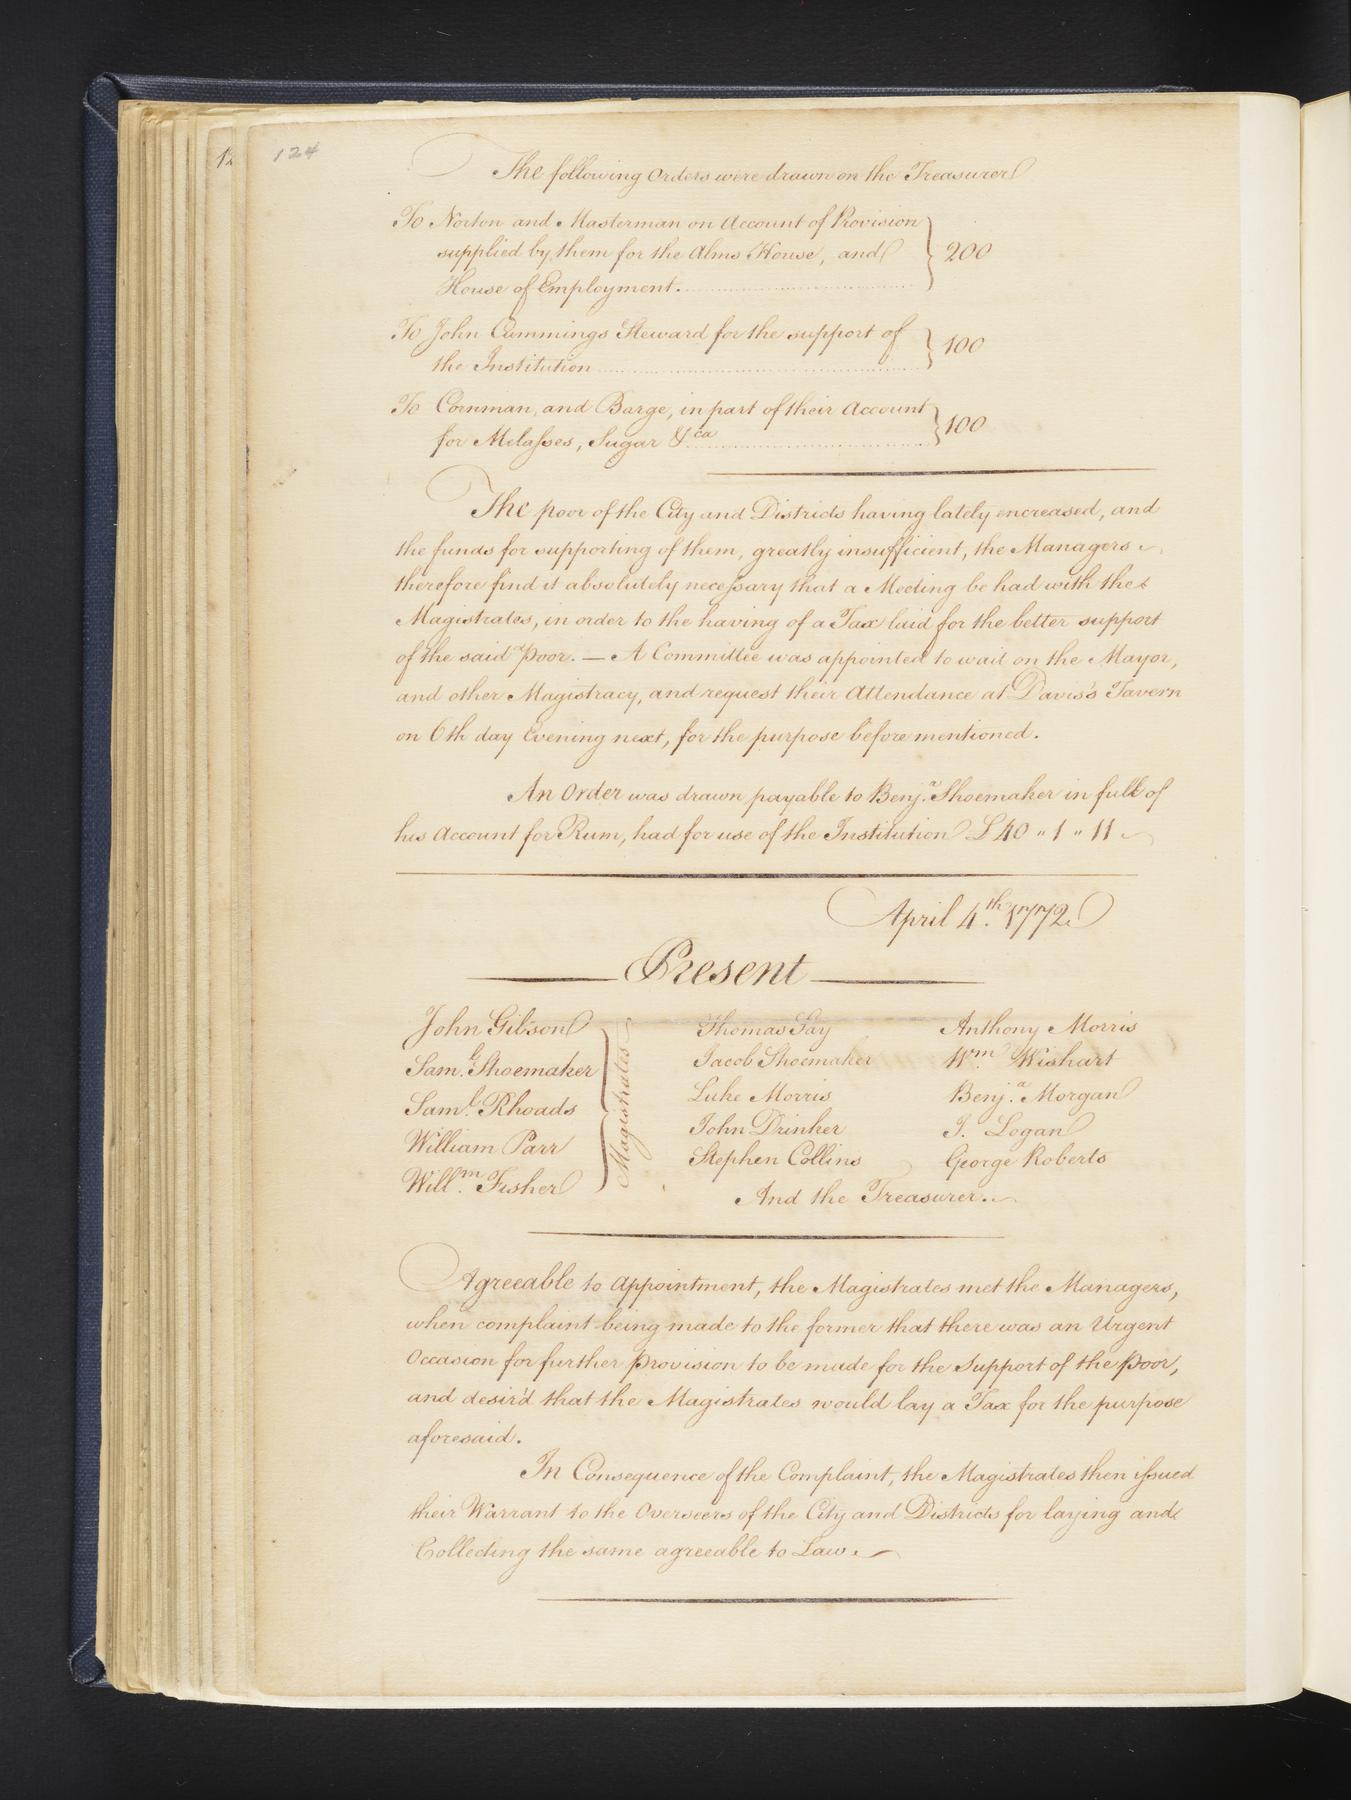 124
The following Orders were drawn on the Treasurer
To Norton and Masterman on Account of Provision
supplied by them for the Alms House, and
House of Employment. 200
To John Cummings Steward for the support of
the Institution 100
To Cornman, and Barge, in part of their Account
for Melasses, Sugar &ca 100
The poor of the City and Districts having lately encreased, and
the funds for supporting of them, greatly insufficient, the Managers
therefore find it absolutely necessary that a Meeting be had with the
Magistrates, in order to the having of a Tax laid for the better support
of the said Poor. — A Committee was appointed to wait on the Mayor,
and other Magistracy, and request their Attendance at Davis's Tavern
on 6th day Evening next, for the purpose before mentioned.
An Order was drawn payable to Benj.a Shoemaker in full of
his Account for Rum, had for use of the Institution £40 " 1 " 11
April 4.th 1772
Present
John Gibson Thomas Say Anthony Morris
Sam.l Shoemaker Jacob Shoemaker W.m Wishart
Sam.l Rhoads Luke Morris Benj.a Morgan
William Parr John Drinker J. Logan
Will.m Fisher Stephen Collins George Roberts
Magistrates
And the Treasurer.
Agreeable to Appointment, the Magistrates met the Managers,
when complaint being made to the former that there was an Urgent
Occasion for further Provision to be made for the Support of the Poor,
and desir'd that the Magistrates would lay a Tax for the purpose
aforesaid.
In Consequence of the Complaint, the Magistrates then issued
their Warrant to the Overseers of the City and Districts for laying and
Collecting the same agreeable to Law.